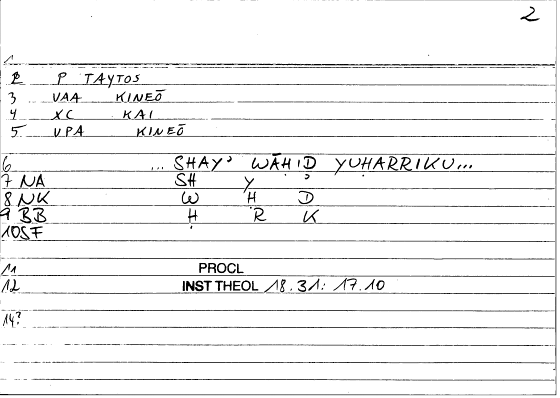 2
1
2 P TAYTOS
3 VAA KINEŌ
4 XC KAI
5 VPA KINEŌ
6 ... SHAYʾ WĀḤID YUḤARRIKU...
7 NA SH Y ʾ
8 NK W Ḥ D
9 BB Ḥ R K
10 SF
11 PROCL
12 INST THEOL 18.31: 17.10
14?